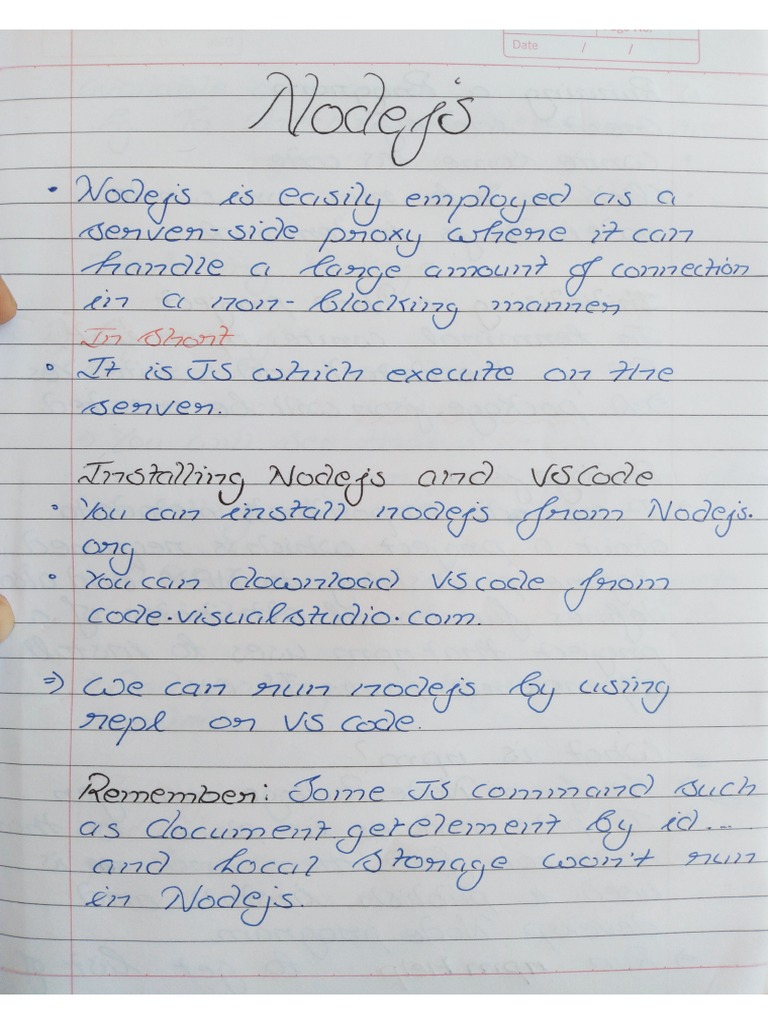 Date / /
Nodejs
• Nodejs is easily employed as a
server-side proxy where it can
handle a large amount of connection
in a non-blocking manner
In short
• It is JS which execute on the
server.
Installing Nodejs and VSCode
• You can install nodejs from Nodejs.
org
• You can download VScode from
code.visualstudio.com.
⇒ We can run nodejs by using
repl or VS code.
Remember: Some JS command such
as document.getelement by id....
and local storage won't run
in Nodejs.